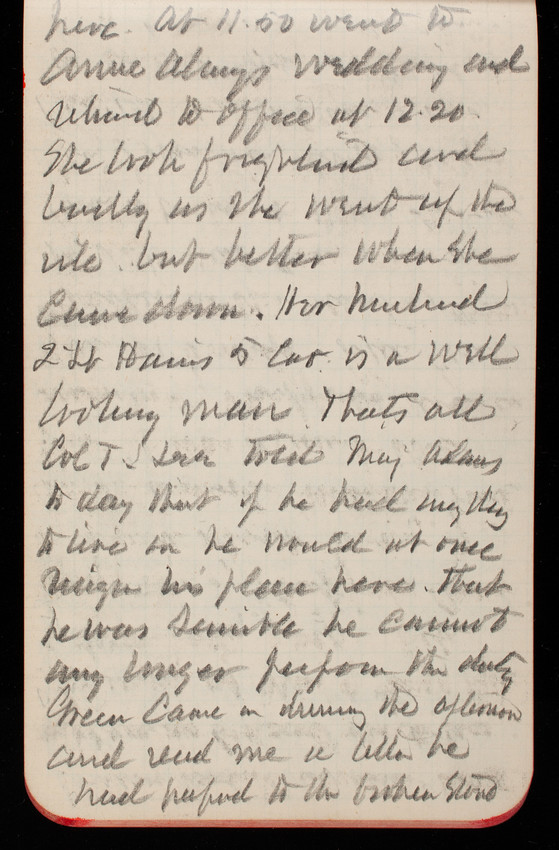 here. At 11.50 went to
Annie Alvays wedding and
returned to office at 12.20.
She look frightened and
badly as she went up the
isle. but better when she
Came down. Her husband
2" Lt Harris 5 Cav. is a well
looking man. That's all
Col T. told Maj Adams
to day that if he had anything
to live on he would at once
resign his place here. That
he was sensible he cannot
any longer perform the duty
Green Came in during the afternoon
and read me a letter he
had prepared to the broken Stone